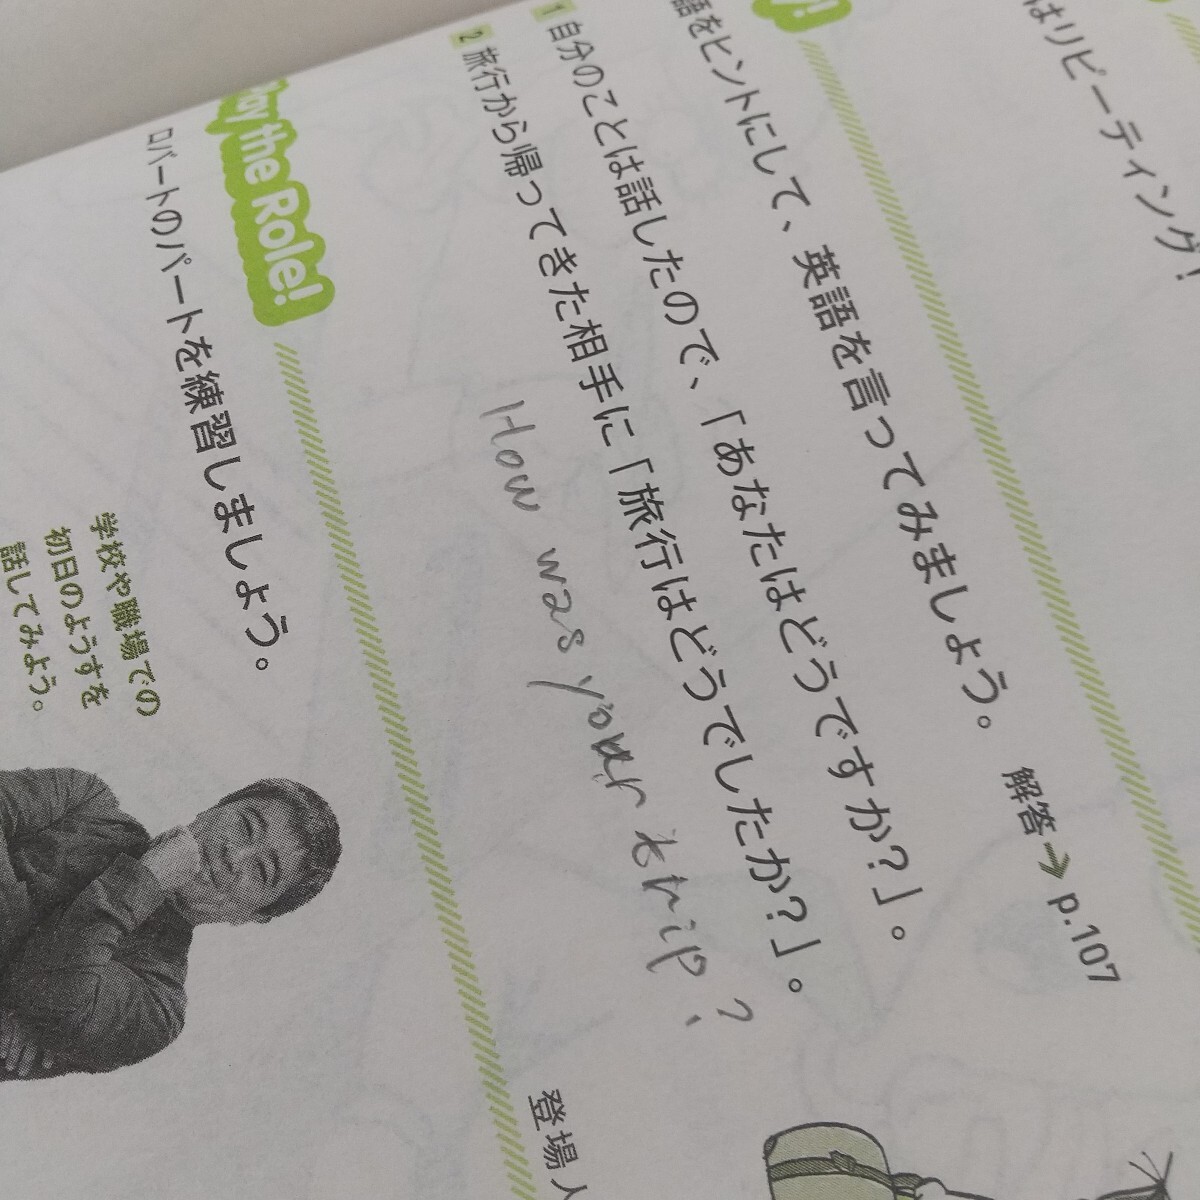 はリピーティング!
y!
語をヒントにして、英語を言ってみましょう。 解答→p.107
1 自分のことは話したので、「あなたはどうですか?」。
2 旅行から帰ってきた相手に「旅行はどうでしたか?」。
How was your trip?
the Role!
ロバートのパートを練習しましょう。
学校や職場での
初日のようすを
話してみよう。
登場人